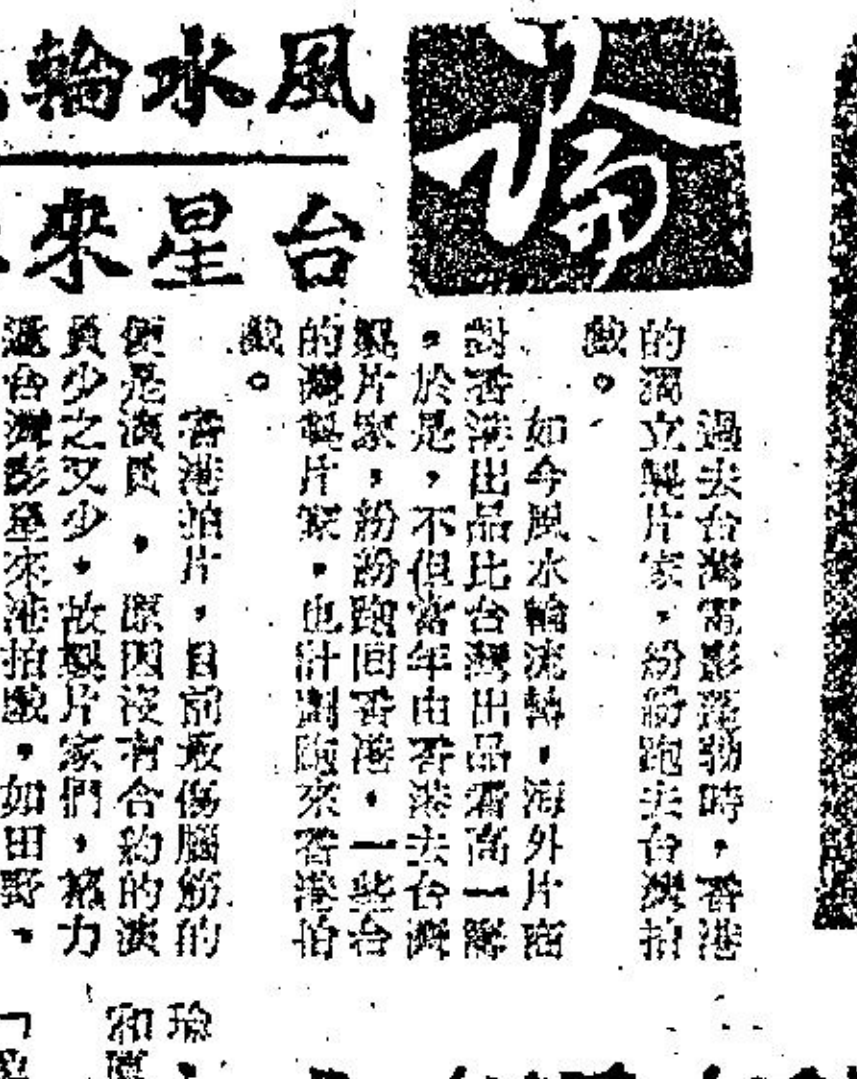 風水輪
台星來
過去台灣電影蓬勃時，香港
的獨立製片家，紛紛跑去台灣拍
戲。
如今風水輪流轉，海外片商
對香港出品比台灣出品看高一
，於是，不但當年由香港去台灣
製片家，紛紛跑回香港，一些台
的灣製片家，也計劃跑來香港拍
戲。
香港拍片，目前最傷腦筋的
便是演員，原因沒有合約的演
員少之又少，故製片家們，力
邀台灣影星來港拍戲，如田野，
瑜，
和
「